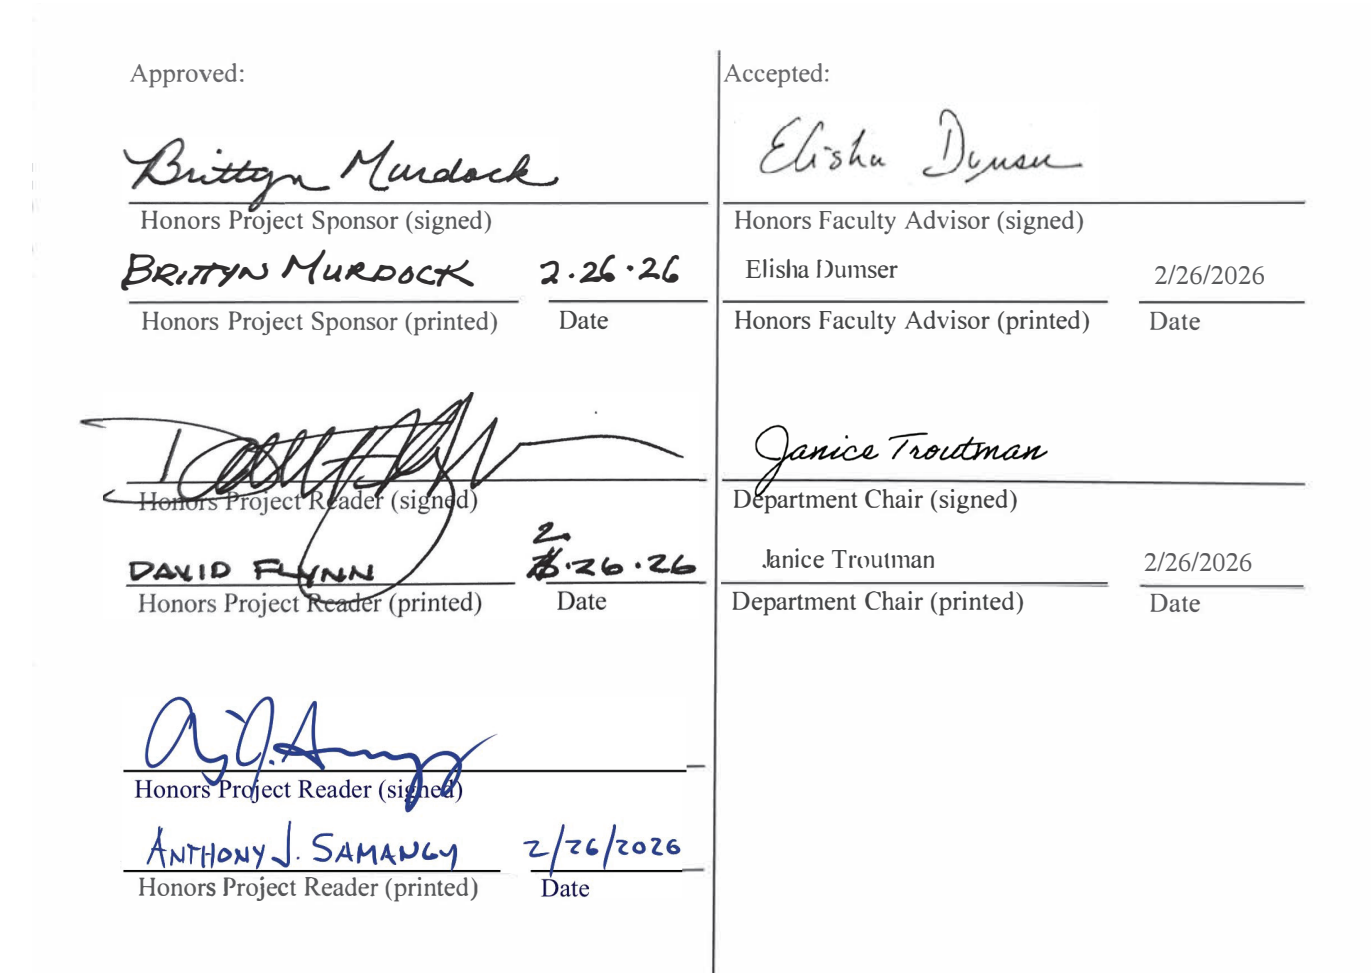 Approved:
Brittyn Murdock
Honors Project Sponsor (signed)
BRITTYN MURDOCK 2.26.26
Honors Project Sponsor (printed) Date
Honors Project Reader (signed)
2.
DAVID FLYNN .26.26
Honors Project Reader (printed) Date
Honors Project Reader (signed)
ANTHONY J. SAMANGY 2/26/2026
Honors Project Reader (printed) Date
Accepted:
Elisha Dumser
Honors Faculty Advisor (signed)
Elisha Dumser 2/26/2026
Honors Faculty Advisor (printed) Date
Janice Troutman
Department Chair (signed)
Janice Troutman 2/26/2026
Department Chair (printed) Date